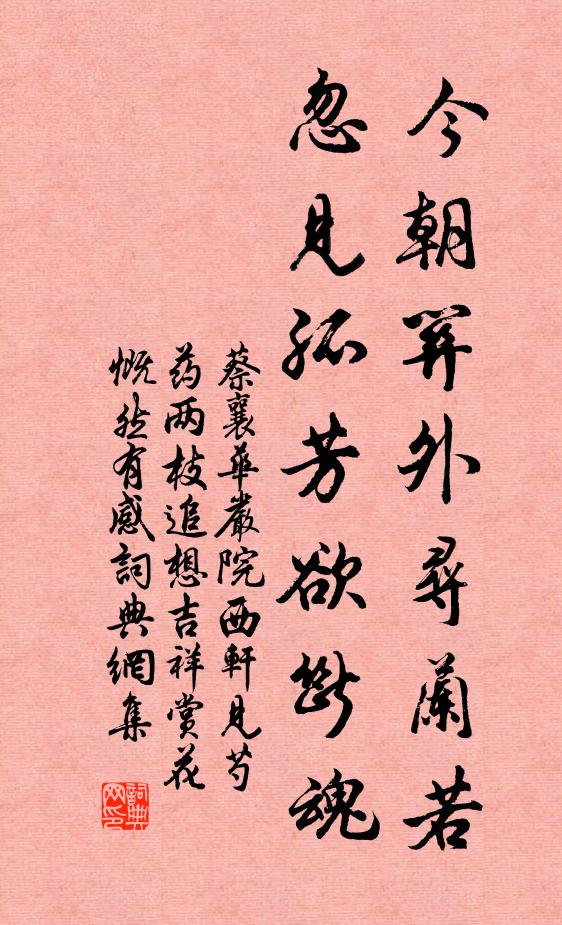 今朝關外尋蘭若
忽見孤芳欲斷魂
蔡襄華嚴院西軒見芍
药两枝追想吉祥賞花
慨然有感詞典網集
詞典网印